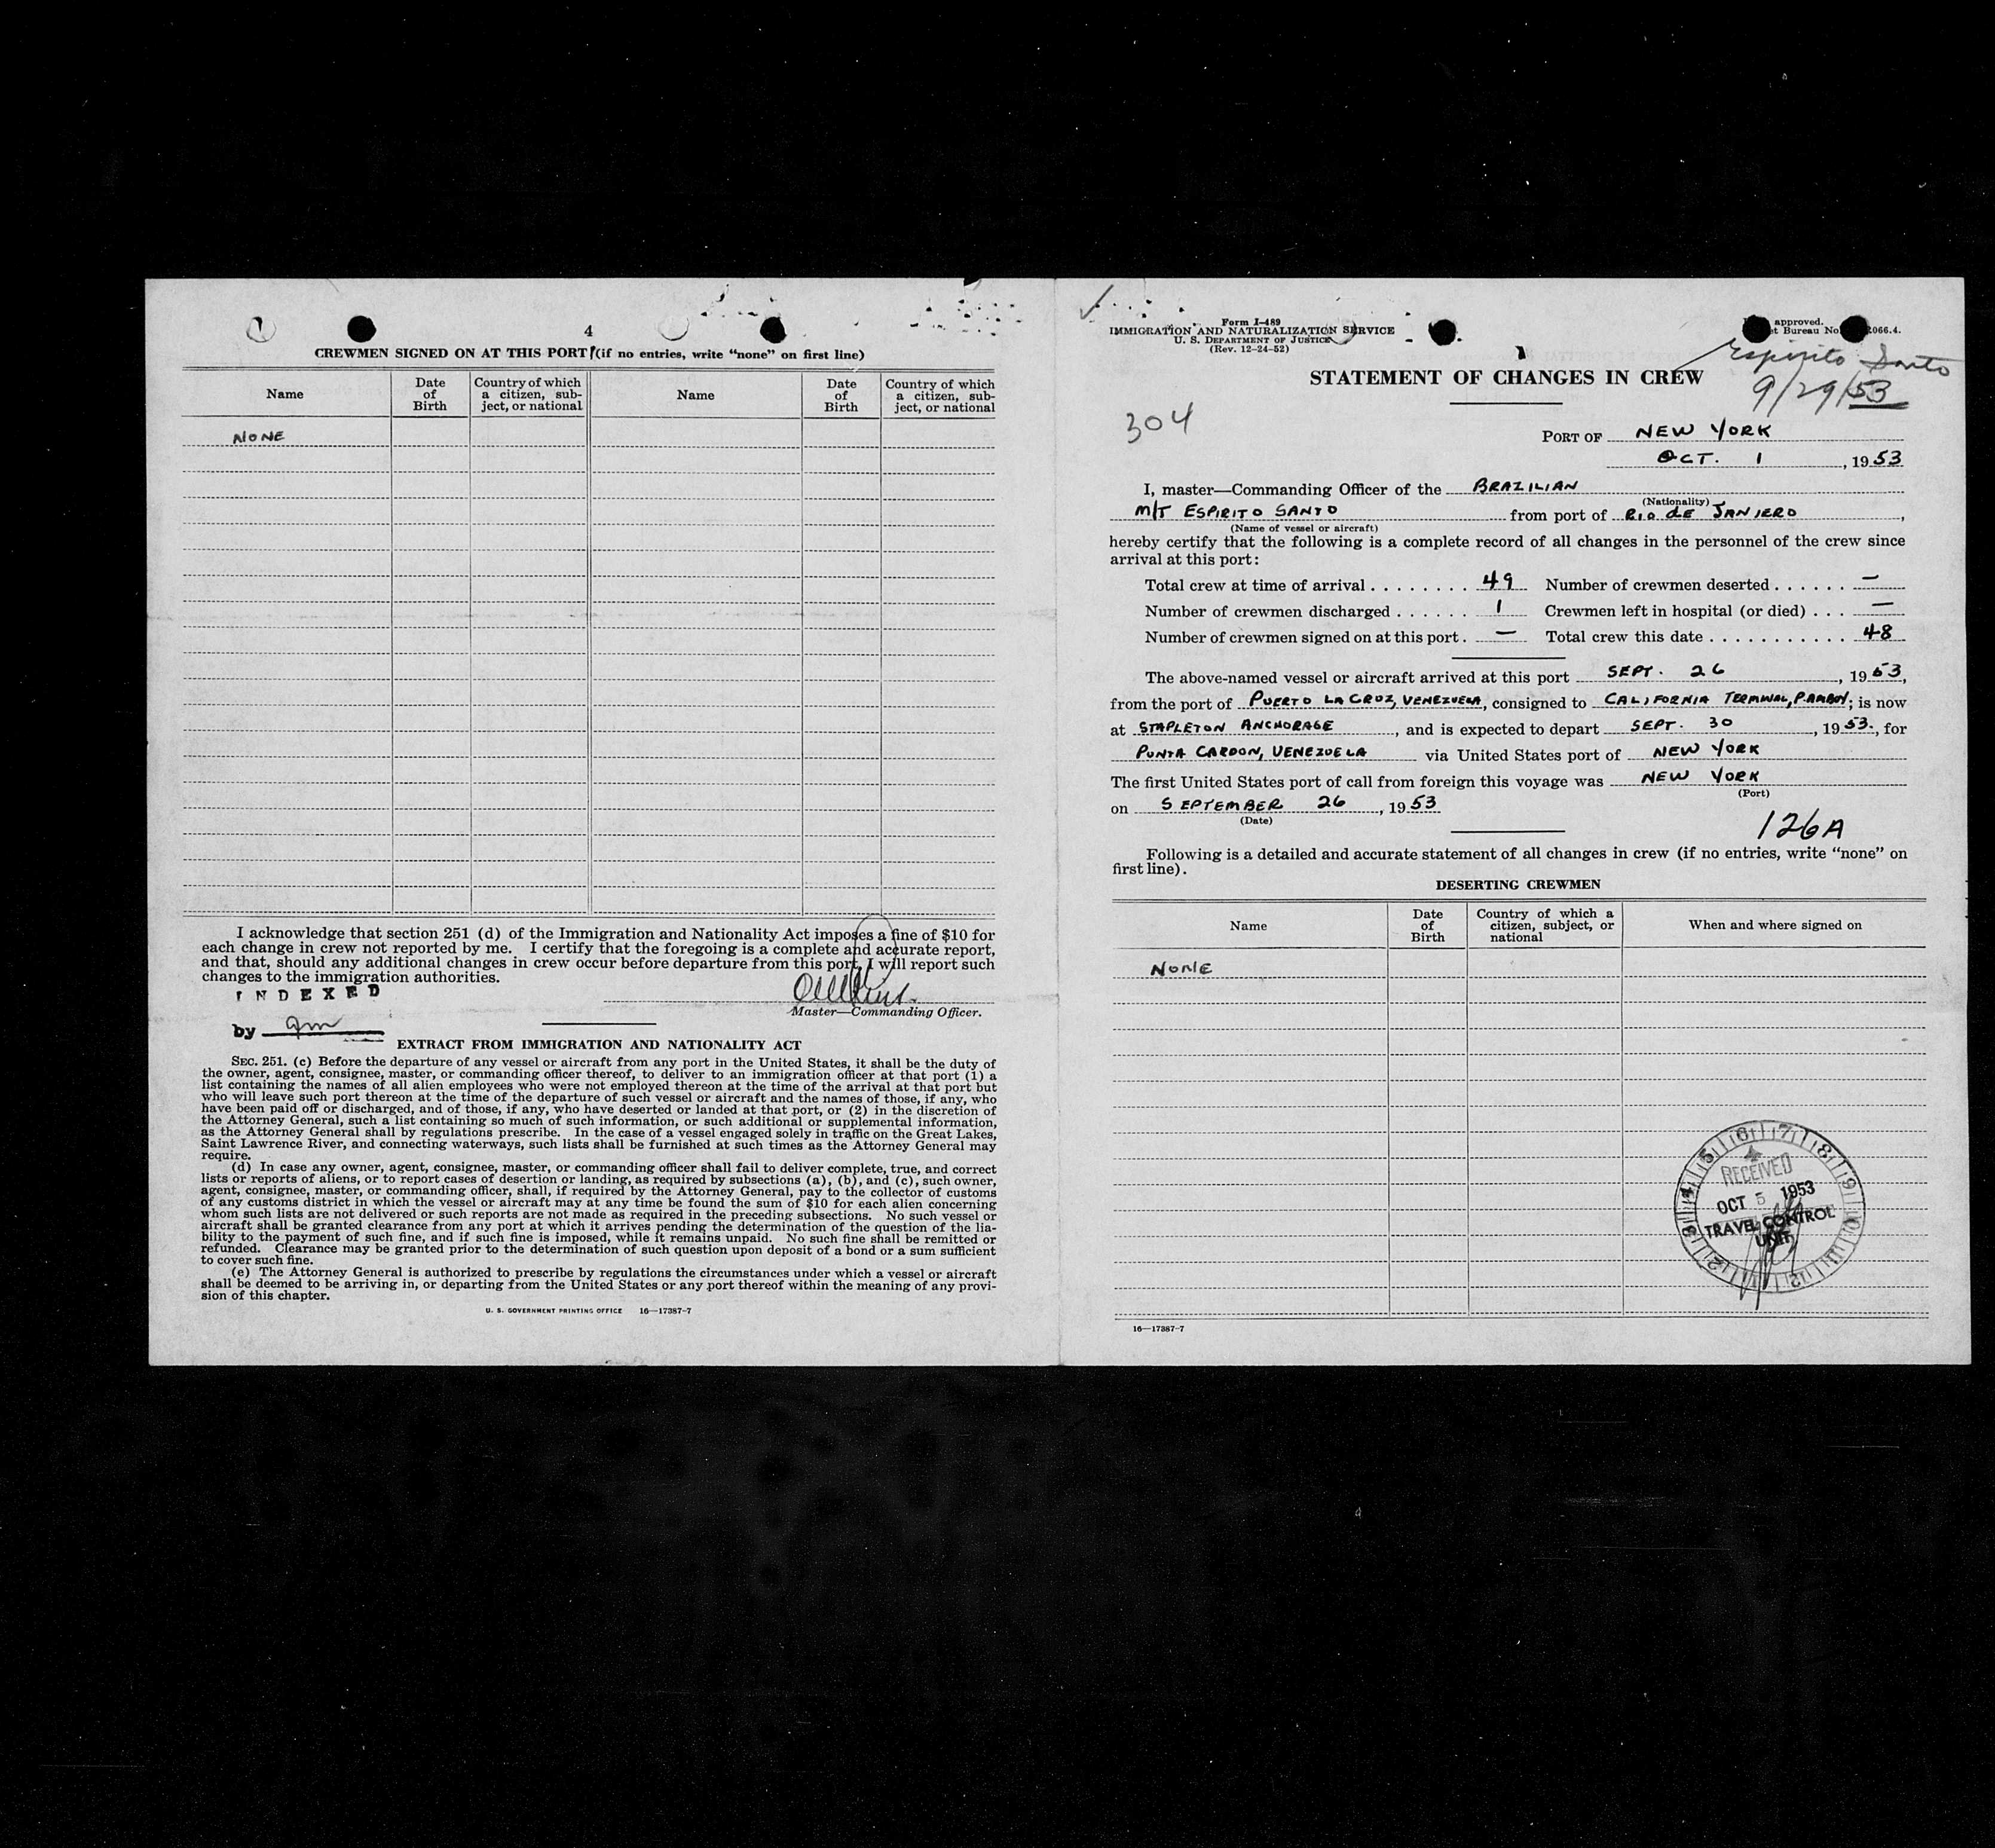 4
CREWMEN SIGNED ON AT THIS PORT (if no entries, write “none” on first line)
Name
Date of Birth
Country of which a citizen, sub-ject, or national
Name
Date of Birth
Country of which a citizen, sub-ject, or national
NONE
I acknowledge that section 251 (d) of the Immigration and Nationality Act imposes a fine of $10 for
each change in crew not reported by me. I certify that the foregoing is a complete and accurate report,
and that, should any additional changes in crew occur before departure from this port, I will report such
changes to the immigration authorities.
INDEXED
by
Master—Commanding Officer.
EXTRACT FROM IMMIGRATION AND NATIONALITY ACT
SEC. 251. (c) Before the departure of any vessel or aircraft from any port in the United States, it shall be the duty of
the owner, agent, consignee, master, or commanding officer thereof, to deliver to an immigration officer at that port (1) a
list containing the names of all alien employees who were not employed thereon at the time of the arrival at that port but
who will leave such port thereon at the time of the departure of such vessel or aircraft and the names of those, if any, who
have been paid off or discharged, and of those, if any, who have deserted or landed at that port, or (2) in the discretion of
the Attorney General, such a list containing so much of such information, or such additional or supplemental information,
as the Attorney General shall by regulations prescribe. In the case of a vessel engaged solely in traffic on the Great Lakes,
Saint Lawrence River, and connecting waterways, such lists shall be furnished at such times as the Attorney General may
require.
(d) In case any owner, agent, consignee, master, or commanding officer shall fail to deliver complete, true, and correct
lists or reports of aliens, or to report cases of desertion or landing, as required by subsections (a), (b), and (c), such owner,
agent, consignee, master, or commanding officer, shall, if required by the Attorney General, pay to the collector of customs
of any customs district in which the vessel or aircraft may at any time be found the sum of $10 for each alien concerning
whom such lists are not delivered or such reports are not made as required in the preceding subsections. No such vessel or
aircraft shall be granted clearance from any port at which it arrives pending the determination of the question of the lia-
bility to the payment of such fine, and if such fine is imposed, while it remains unpaid. No such fine shall be remitted or
refunded. Clearance may be granted prior to the determination of such question upon deposit of a bond or a sum sufficient
to cover such fine.
(e) The Attorney General is authorized to prescribe by regulations the circumstances under which a vessel or aircraft
shall be deemed to be arriving in, or departing from the United States or any port thereof within the meaning of any provi-
sion of this chapter.
U. S. GOVERNMENT PRINTING OFFICE 16—17387-7
Form I-489
IMMIGRATION AND NATURALIZATION SERVICE
U. S. DEPARTMENT OF JUSTICE
(Rev. 12-24-52)
approved.
Bureau No. 066.4.
Espirito Santo
9/29/53
STATEMENT OF CHANGES IN CREW
304
PORT OF NEW YORK
OCT. 1, 1953
I, master—Commanding Officer of the BRAZILIAN
(Nationality)
M/T ESPIRITO SANTO from port of RIO dE JANIERO,
(Name of vessel or aircraft)
hereby certify that the following is a complete record of all changes in the personnel of the crew since
arrival at this port:
Total crew at time of arrival . . . . . . . . 49 Number of crewmen deserted . . . . . . —
Number of crewmen discharged . . . . . . 1 Crewmen left in hospital (or died) . . . —
Number of crewmen signed on at this port . — Total crew this date . . . . . . . . . . . 48
The above-named vessel or aircraft arrived at this port SEPT. 26, 1953,
from the port of PUERTO LA CRUZ, VENEZUELA, consigned to CALIFORNIA TERMINAL, P.AMBOY; is now
at STAPLETON ANCHORAGE, and is expected to depart SEPT. 30, 1953., for
PUNTA CARDON, VENEZUELA via United States port of NEW YORK
The first United States port of call from foreign this voyage was NEW YORK
(Port)
on SEPTEMBER 26, 1953
(Date)
126A
Following is a detailed and accurate statement of all changes in crew (if no entries, write “none” on
first line).
DESERTING CREWMEN
Name
Date of Birth
Country of which a citizen, subject, or national
When and where signed on
NONE
RECEIVED
OCT 5 1953
TRAVEL CONTROL
UNIT
16—17387-7